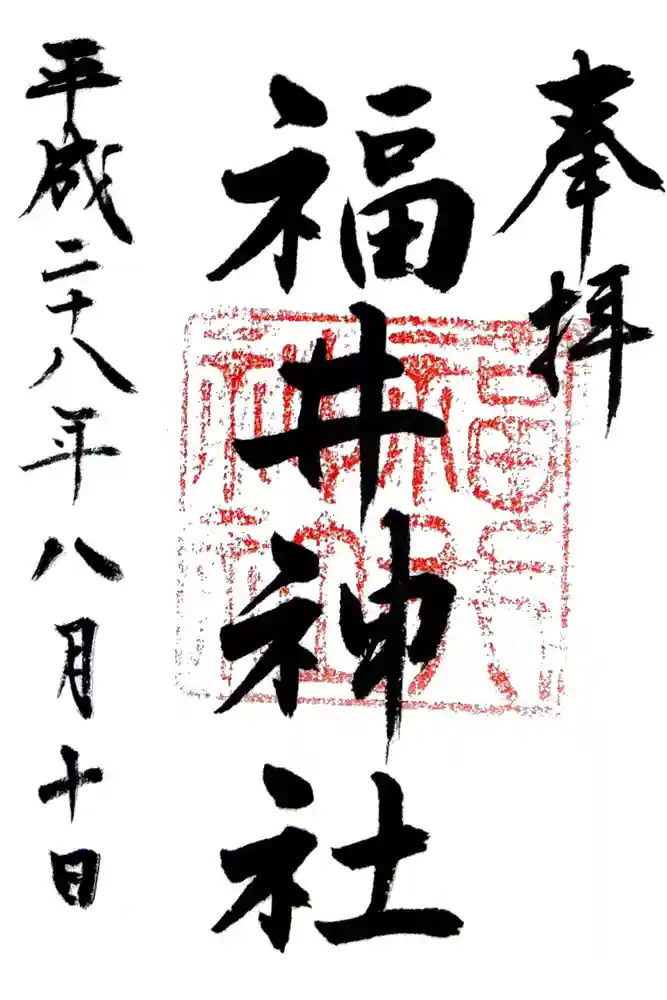 奉拝
福井神社
平成二十八年八月十日